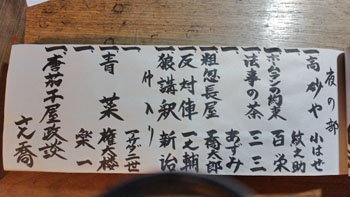 夜の部
一、高砂や 小はぜ
一、 紋之助
一、ボーメンの約束 百栄
一、法事の茶 三三
一、 あずみ
一、粗忽長屋 喬太郎
一、反対俥 一之輔
一、狼講釈 新治
仲入り
一、
一、青菜 権太楼
一、 楽一
一、唐茄子屋政談 さん喬